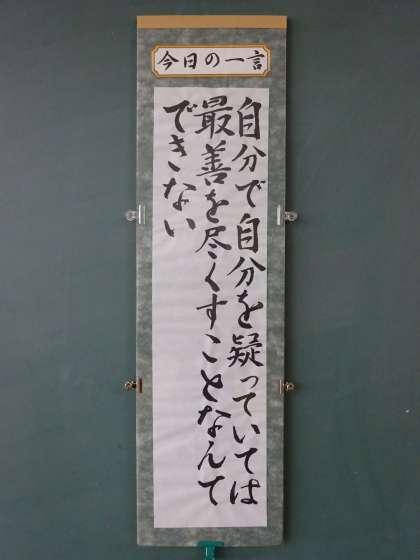 今日の一言
自分で自分を疑っていては
最善を尽くすことなんて
できない